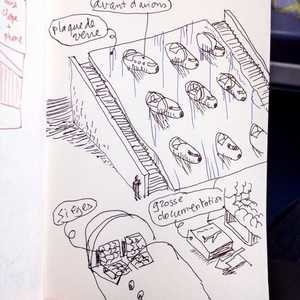 avant d'avions
plaque de
verre
sièges
grosse
documentation